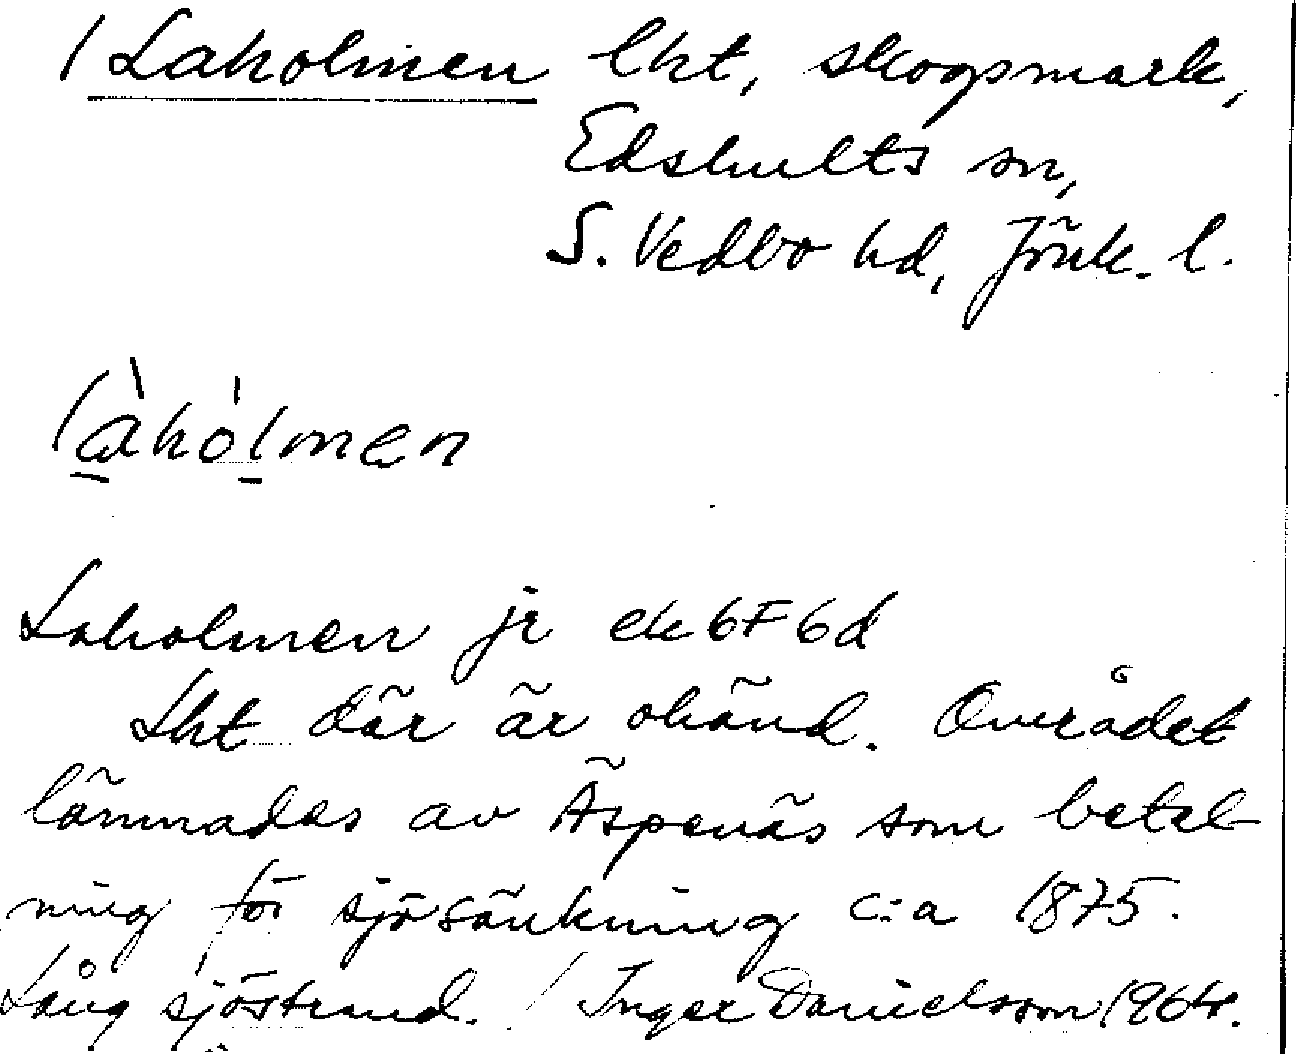 / Laholmen lht, skogsmark,
Edshults sn,
S. Vedbo hd, Jönk. l.
làhòlmen
Laholmen jr ek 6F 6d
Lht där är okänd. Området
lämnades av Äspenäs som betal-
ning för sjösänkning c:a 1875.
Lång sjöstrand. / Inger Danielsson 1964.